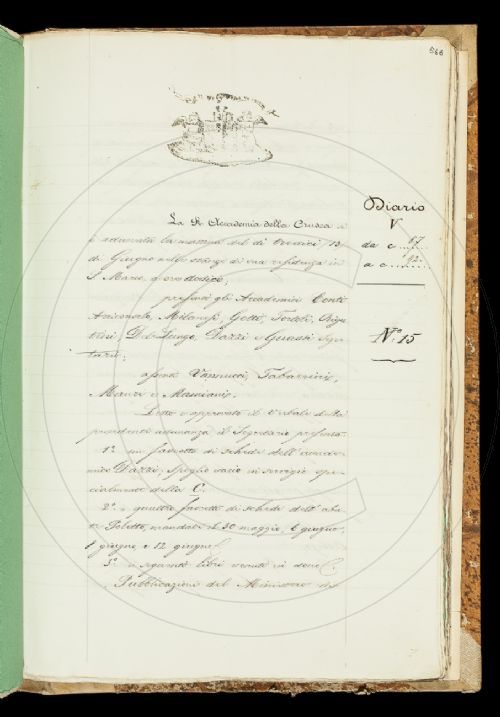 566
La R. Accademia della Crusca si
è adunata la mattina del dì tredici 13
di Giugno nelle stanze di sua residenza in
S. Marco, a ore dodici;
presenti gli Accademici Conti
Arciconsolo, Milanesi, Gotti, Tortoli, Rigu-
tini, Del Lungo, Dazzi e Guasti Segre-
tario;
assenti Vannucci, Tabarrini,
Mauri e Mamiani.
Letto e approvato il Verbale della
precedente adunanza il Segretario presenta
1.° un fascetto di schede dell'accade-
mico Dazzi, spoglio vario in servigio spe-
cialmente della C.
2.° quattro fascetti di schede dell'aba-
te Poletto, mandati il 30 maggio, 6 giugno,
giugno, e 12 giugno.
3.° i seguenti libri venuti in dono
Pubblicazioni del Ministero
Diario
V
da c. 87
a c. 92
N.° 15